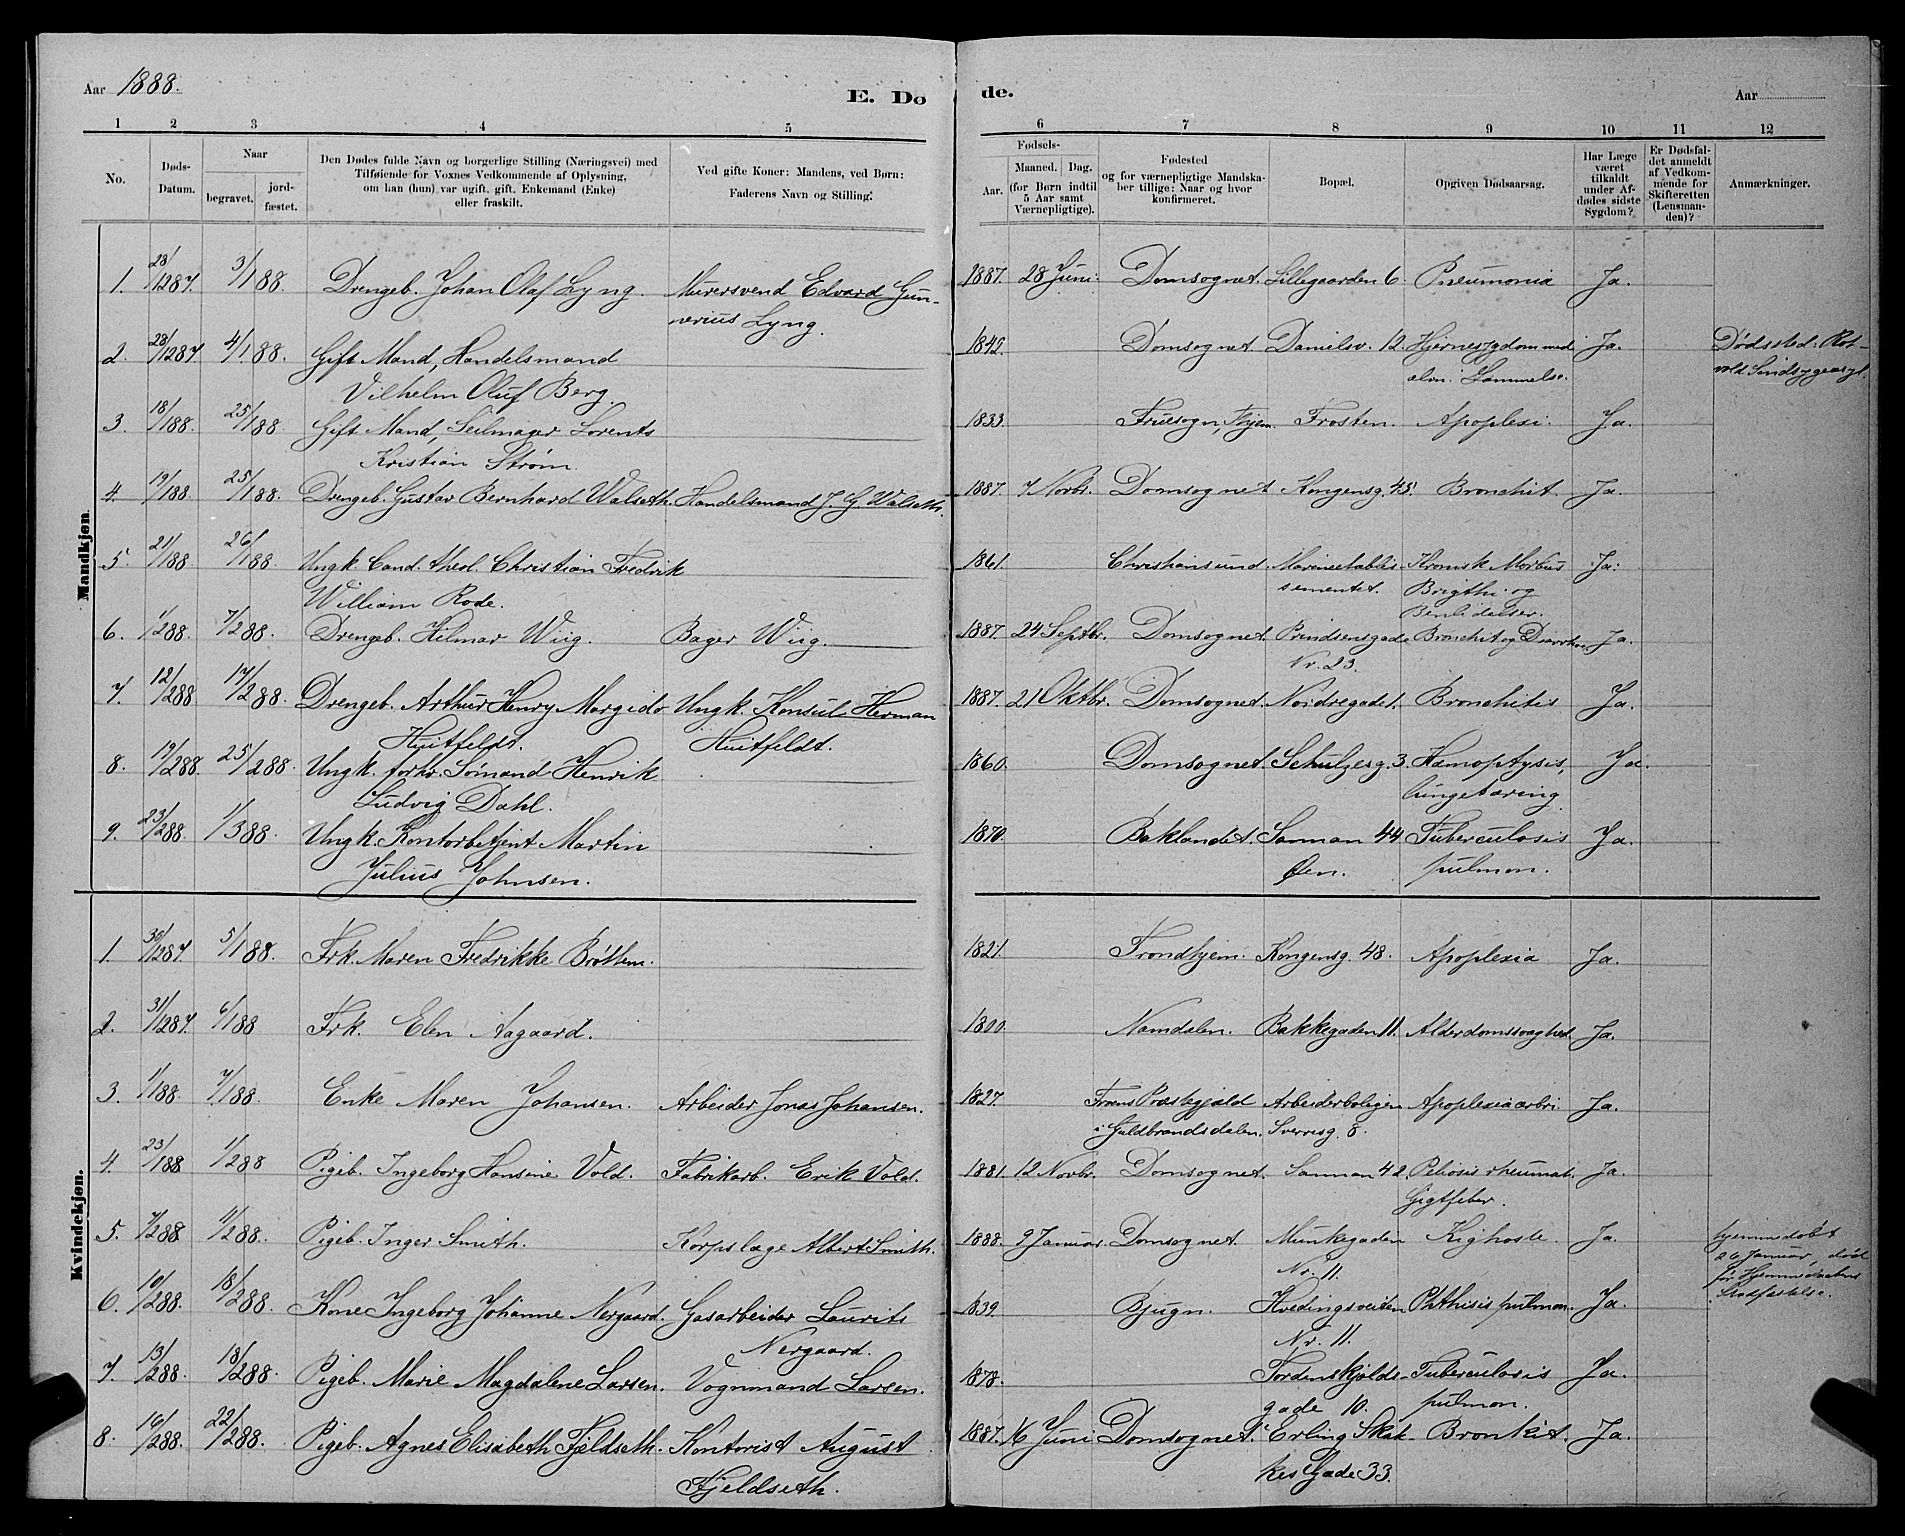 Aar 1888.
E. Dø
de.
Aar
1 2 3 4 5 6 7 8 9 10 11 12
No.
Døds-Datum.
Naar
begravet.
jord-fæstet.
Den Dødes fulde Navn og borgerlige Stilling (Næringsvei) med
Tilføiende for Voxnes Vedkommende af Oplysning,
om han (hun) var ugift, gift, Enkemand (Enke)
eller fraskilt.
Ved gifte Koner: Mandens, ved Børn:
Faderens Navn og Stilling.
Fødsels-
Aar.
Maaned. Dag.
(for Børn indtil
5 Aar samt
Værnepligtige).
Fødested
og for værnepligtige Mandska-
ber tillige: Naar og hvor
konfirmeret.
Bopæl.
Opgiven Dødsaarsag.
Har Læge
været
tilkaldt
under Af-
dødes sidste
Sygdom?
Er Dødsfal-
det anmeldt
af Vedkom-
mende for
Skifteretten
(Lensman-
den)?
Anmærkninger.
Mandkjøn.
1. 28/1287. 3/188. Drengeb. Johan Olaf Lyng. Murersvend Edvard Gun- 1887. 28 Juni. Domsognet. Lillegaarden 6. Pneumonia Ja.
nerius Lyng.
2. 28/1287 4/188. Gift Mand, Handelsmand 1842. Domsognet. Danielsv. 12. Hjernesygdom med Ja. Dødssted: Rot-
Vilhelm Oluf Berg. alm. Lammelse. vold Sindsygeasyl.
3. 18/188. 25/188. Gift Mand, Seilmager Lorents 1833. Fruesogn, Thjem. Frosten. Apoplexi. Ja.
Kristian Strøm.
4. 19/188. 25/188. Drengeb. Gustav Bernhard Walseth. Handelsmand J. G. Walseth. 1887. 7 Novbr. Domsognet Kongensg. 45. Bronchit. Ja.
5. 21/188 26/188. Ungk. Cand. theol. Christian Fredrik 1861. Christiansund Marineetablis- Kronisk Morbus Ja.
William Rode. sementet. Brigthi og
Benlidelser.
6. 1/288. 7/288. Drengeb. Hilmar Wiig. Bager Wiig. 1887. 24 Septbr. Domsognet. Prindsensgade Bronchit og Diarrhoe. Ja.
Nr. 23.
7. 12/288 17/288. Drengeb. Arthur Henry Margido Ungk. Konsul Herman 1887. 21 Oktbr. Domsognet. Nordregade 1. Bronchitis Ja.
Huitfeldt. Huitfeldt.
8. 19/288. 25/288. Ungk. forhv. Sømand Henrik 1860. Domsognet. Schulzesg. 3. Hæmoptysis, Ja.
Ludvig Dahl. lungetæring
9. 23/288. 1/388. Ungk. Kontorbetjent Martin 1870. Baklandet. Sanman 44 Tuberculosis Ja.
Julius Johnsen. Øen. pulmon.
Kvindekjøn.
1. 30/1287. 5/188. Frk. Maren Fredrikke Brøttem. 1821. Trondhjem. Kongensg. 48. Apoplexia Ja.
2. 31/1287. 6/188 Frk. Elen Aagaard. 1800. Namdalen. Bakkegaden 11. Alderdomssvaghed. Ja.
3. 1/188. 7/188. Enke Maren Johansen. Arbeider Jonas Johansen. 1827. Frons Præstegjæld Arbeiderboligen Apoplexia cerbri Ja.
i Guldbrandsdalen. Sverresg. 8.
4. 23/188 1/288 Pigeb. Ingeborg Hansine Vold. Fabrikarb. Erik Vold. 1881. 12 Novbr. Domsognet. Sanman 42. Peliosis rheumat. Ja.
Gigtfeber.
5. 7/288 11/288. Pigeb. Inger Smith. Korpslæge Albert Smith. 1888. 9 Januar. Domsognet. Munkegaden Kighoste. Ja. hjemmedøbt
Nr. 11. 26 Januar, død
før Hjemmedaabens
Stadfæstelse.
6. 10/288. 18/288. Kone Ingeborg Johanne Nergaard. Gasarbeider Laurits 1839. Bjugn. Hvedingsveiten Phthisis pulmon. Ja.
Nergaard. Nr. 11.
7. 13/288. 18/288. Pigeb. Marie Magdalene Larsen. Vognmand Larsen. 1878. Tordenskjolds- Tuberculosis Ja.
gade 10. pulmon.
8. 16/288. 22/288. Pigeb. Agnes Elisabeth Fjeldseth. Kontorist August 1887. 16 Juni Domsognet. Erling Skak- Bronkit. Ja.
Fjeldseth. kes Gade 33.